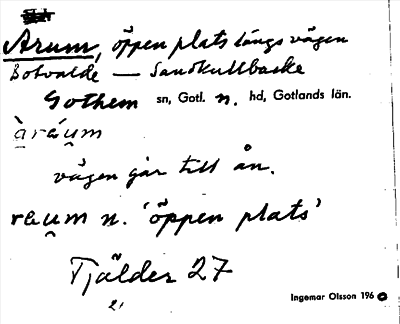 Arum, öppen plats längs vägen
Botvalde — Sandkullbacke
Gothem sn, Gotl. n. hd, Gotlands län.
a̱ràu̯m
vägen går till ån.
rau̯m n. 'öppen plats'
Tjälder 27
Ingemar Olsson 1960